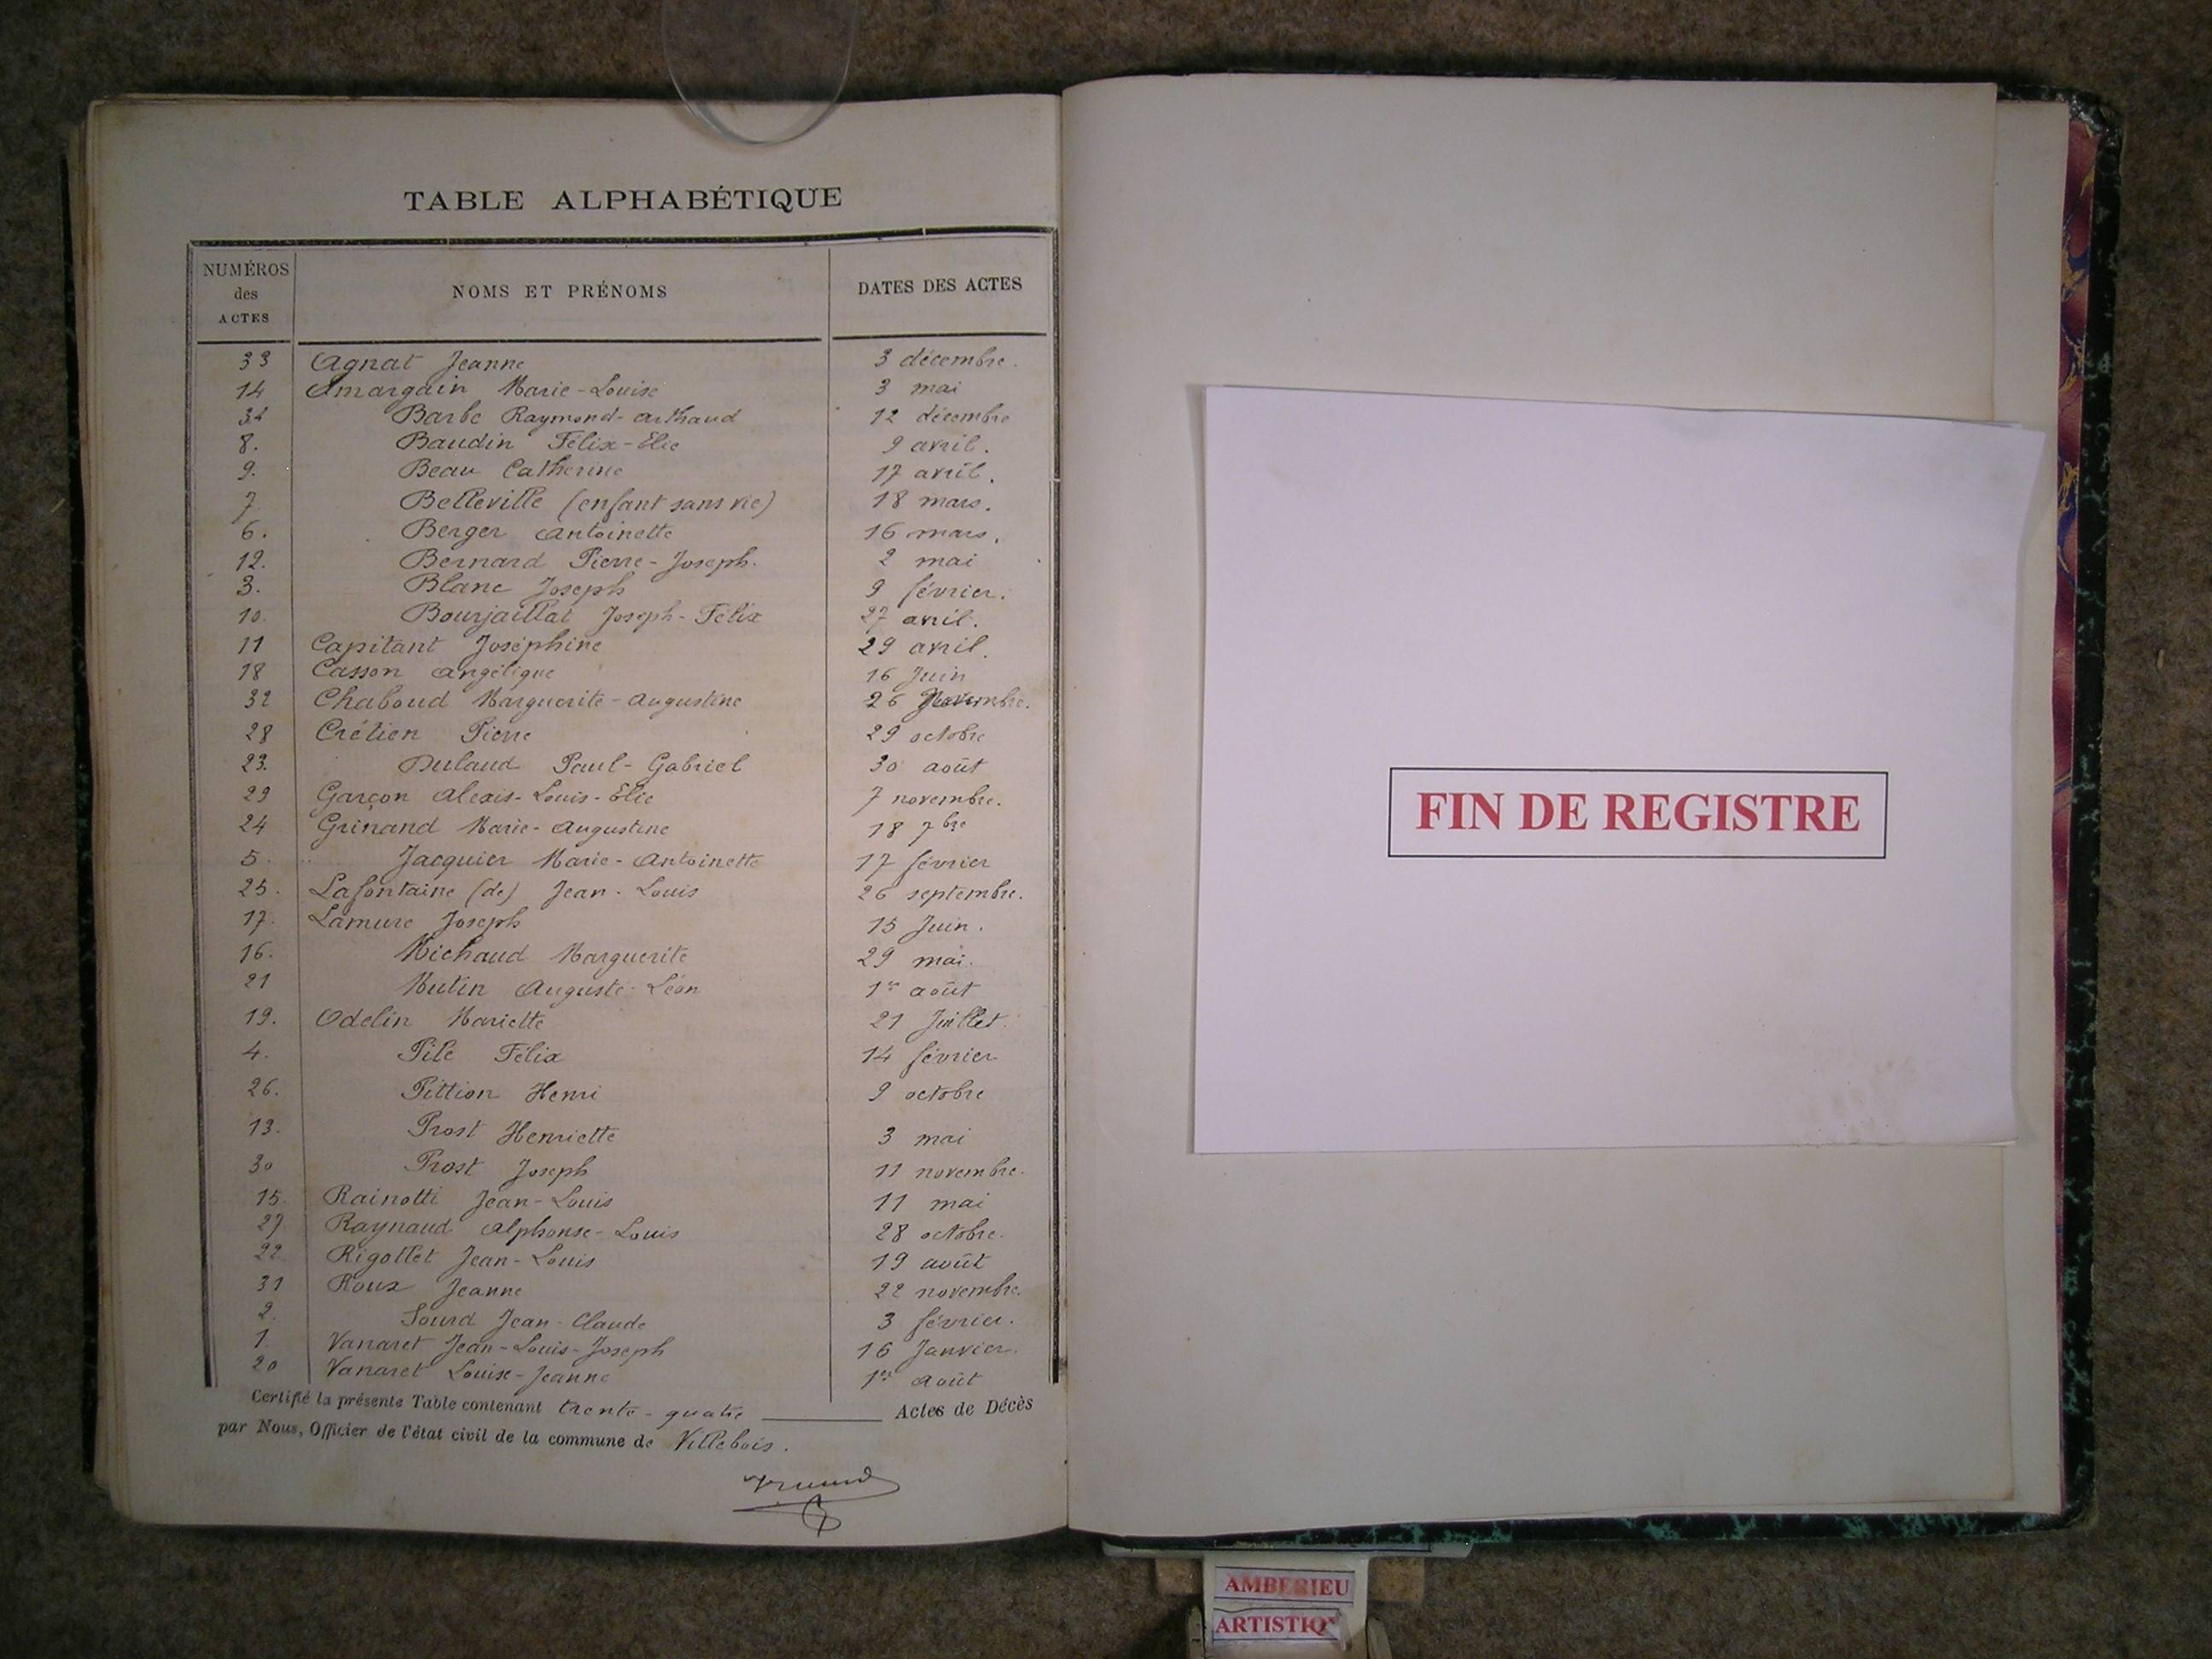 TABLE ALPHABÉTIQUE
NUMÉROS des ACTES NOMS ET PRÉNOMS DATES DES ACTES
33 Agnat Jeanne 3 décembre.
14 Amargain Marie-Louise 3 mai
34 Barbe Raymond-Arthaud 12 décembre
8. Baudin Félix-Elie 9 avril.
9. Beau Catherine 17 avril.
7. Belleville (enfant sans vie) 18 mars.
6. Berger Antoinette 16 mars.
12. Bernard Pierre-Joseph. 2 mai
3. Blanc Joseph 9 février.
10. Bourjaillat Joseph-Félix 27 avril.
11 Capitant Joséphine 29 avril.
18 Casson Angélique 16 Juin
32 Chaboud Marguerite-Augustine 26 Novembre.
28 Crétien Pierre 29 octobre
23. Dulaud Paul-Gabriel 30 août
29 Garçon Alexis-Louis-Elie 7 novembre.
24 Grinand Marie-Augustine 18 7bre
5. Jacquier Marie-Antoinette 17 février
25. Lafontaine (de) Jean-Louis 26 septembre.
17. Lamure Joseph 15 Juin.
16. Michaud Marguerite 29 mai.
21 Mutin Auguste-Léon 1er août
19. Odelin Mariette 21 Juillet.
4. Pilé Félix 14 février
26. Pittion Henri 9 octobre
13. Prost Henriette 3 mai
30 Prost Joseph 11 novembre.
15. Rainotti Jean-Louis 11 mai
27 Raynaud Alphonse-Louis 28 octobre.
22 Rigollet Jean-Louis 19 août
31 Roux Jeanne 22 novembre.
2. Sourd Jean-Claude 3 février.
1. Vanaret Jean-Louis-Joseph 16 Janvier.
20 Vanaret Louise-Jeanne 1er août
Certifié la présente Table contenant trente-quatre Actes de Décès
par Nous, Officier de l'état civil de la commune de Villebois.
FIN DE REGISTRE
AMBERIEU
ARTISTIQ